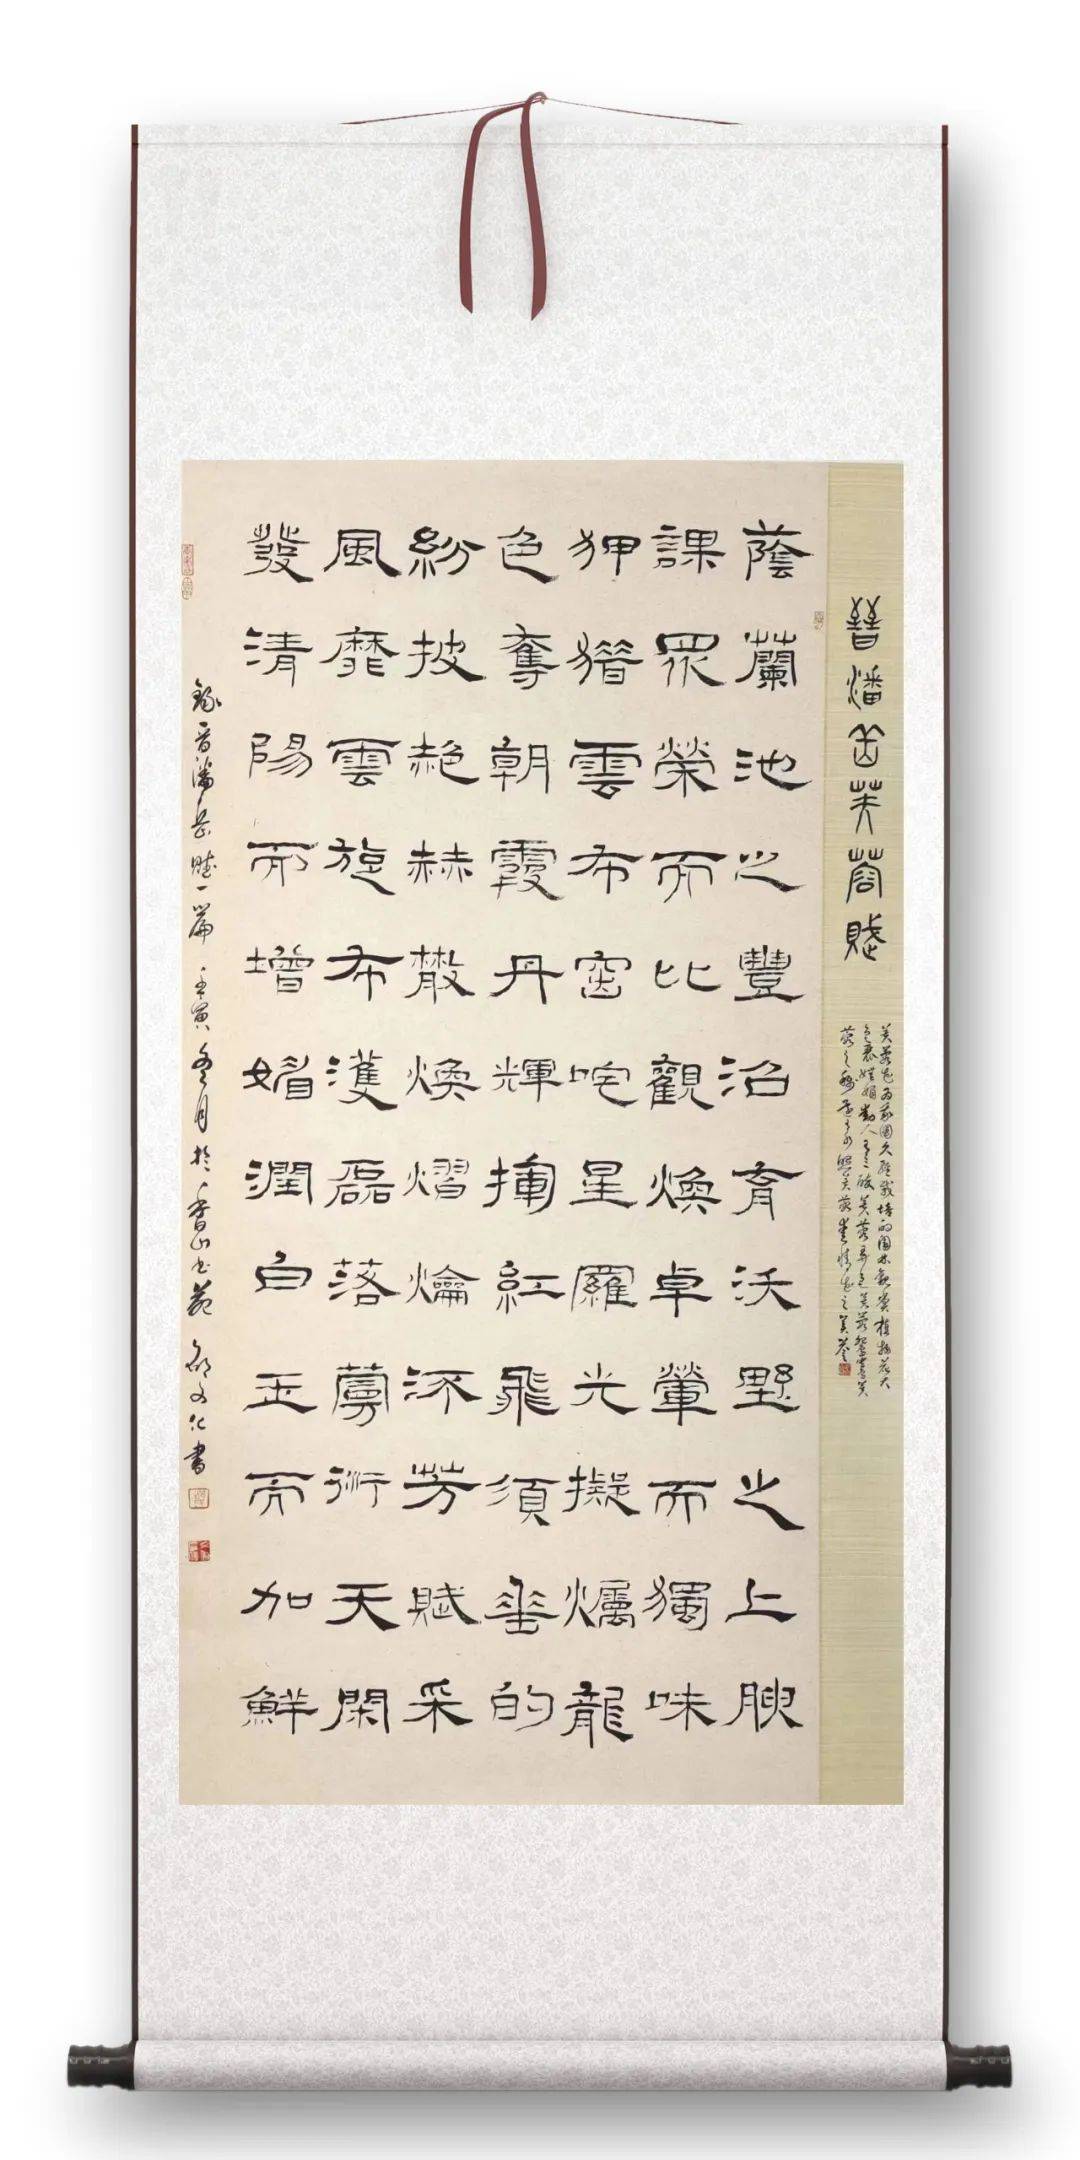 晉潘岳芙蓉賦
蔭蘭池之豐沼育沃野之上腴
課眾榮而比觀煥卓犖而獨味
狎獵雲布窋咤星羅光擬爥龍
色奪朝霞丹輝拂紅飛須垂的
紛披赩赫散煥熠爚流芳賦采
風靡雲旋布濩磊落蔓衍天閑
發清陽而增媚潤白玉而加鮮
錄晉潘岳賦一篇 壬寅冬月於香山書苑 邵文化書